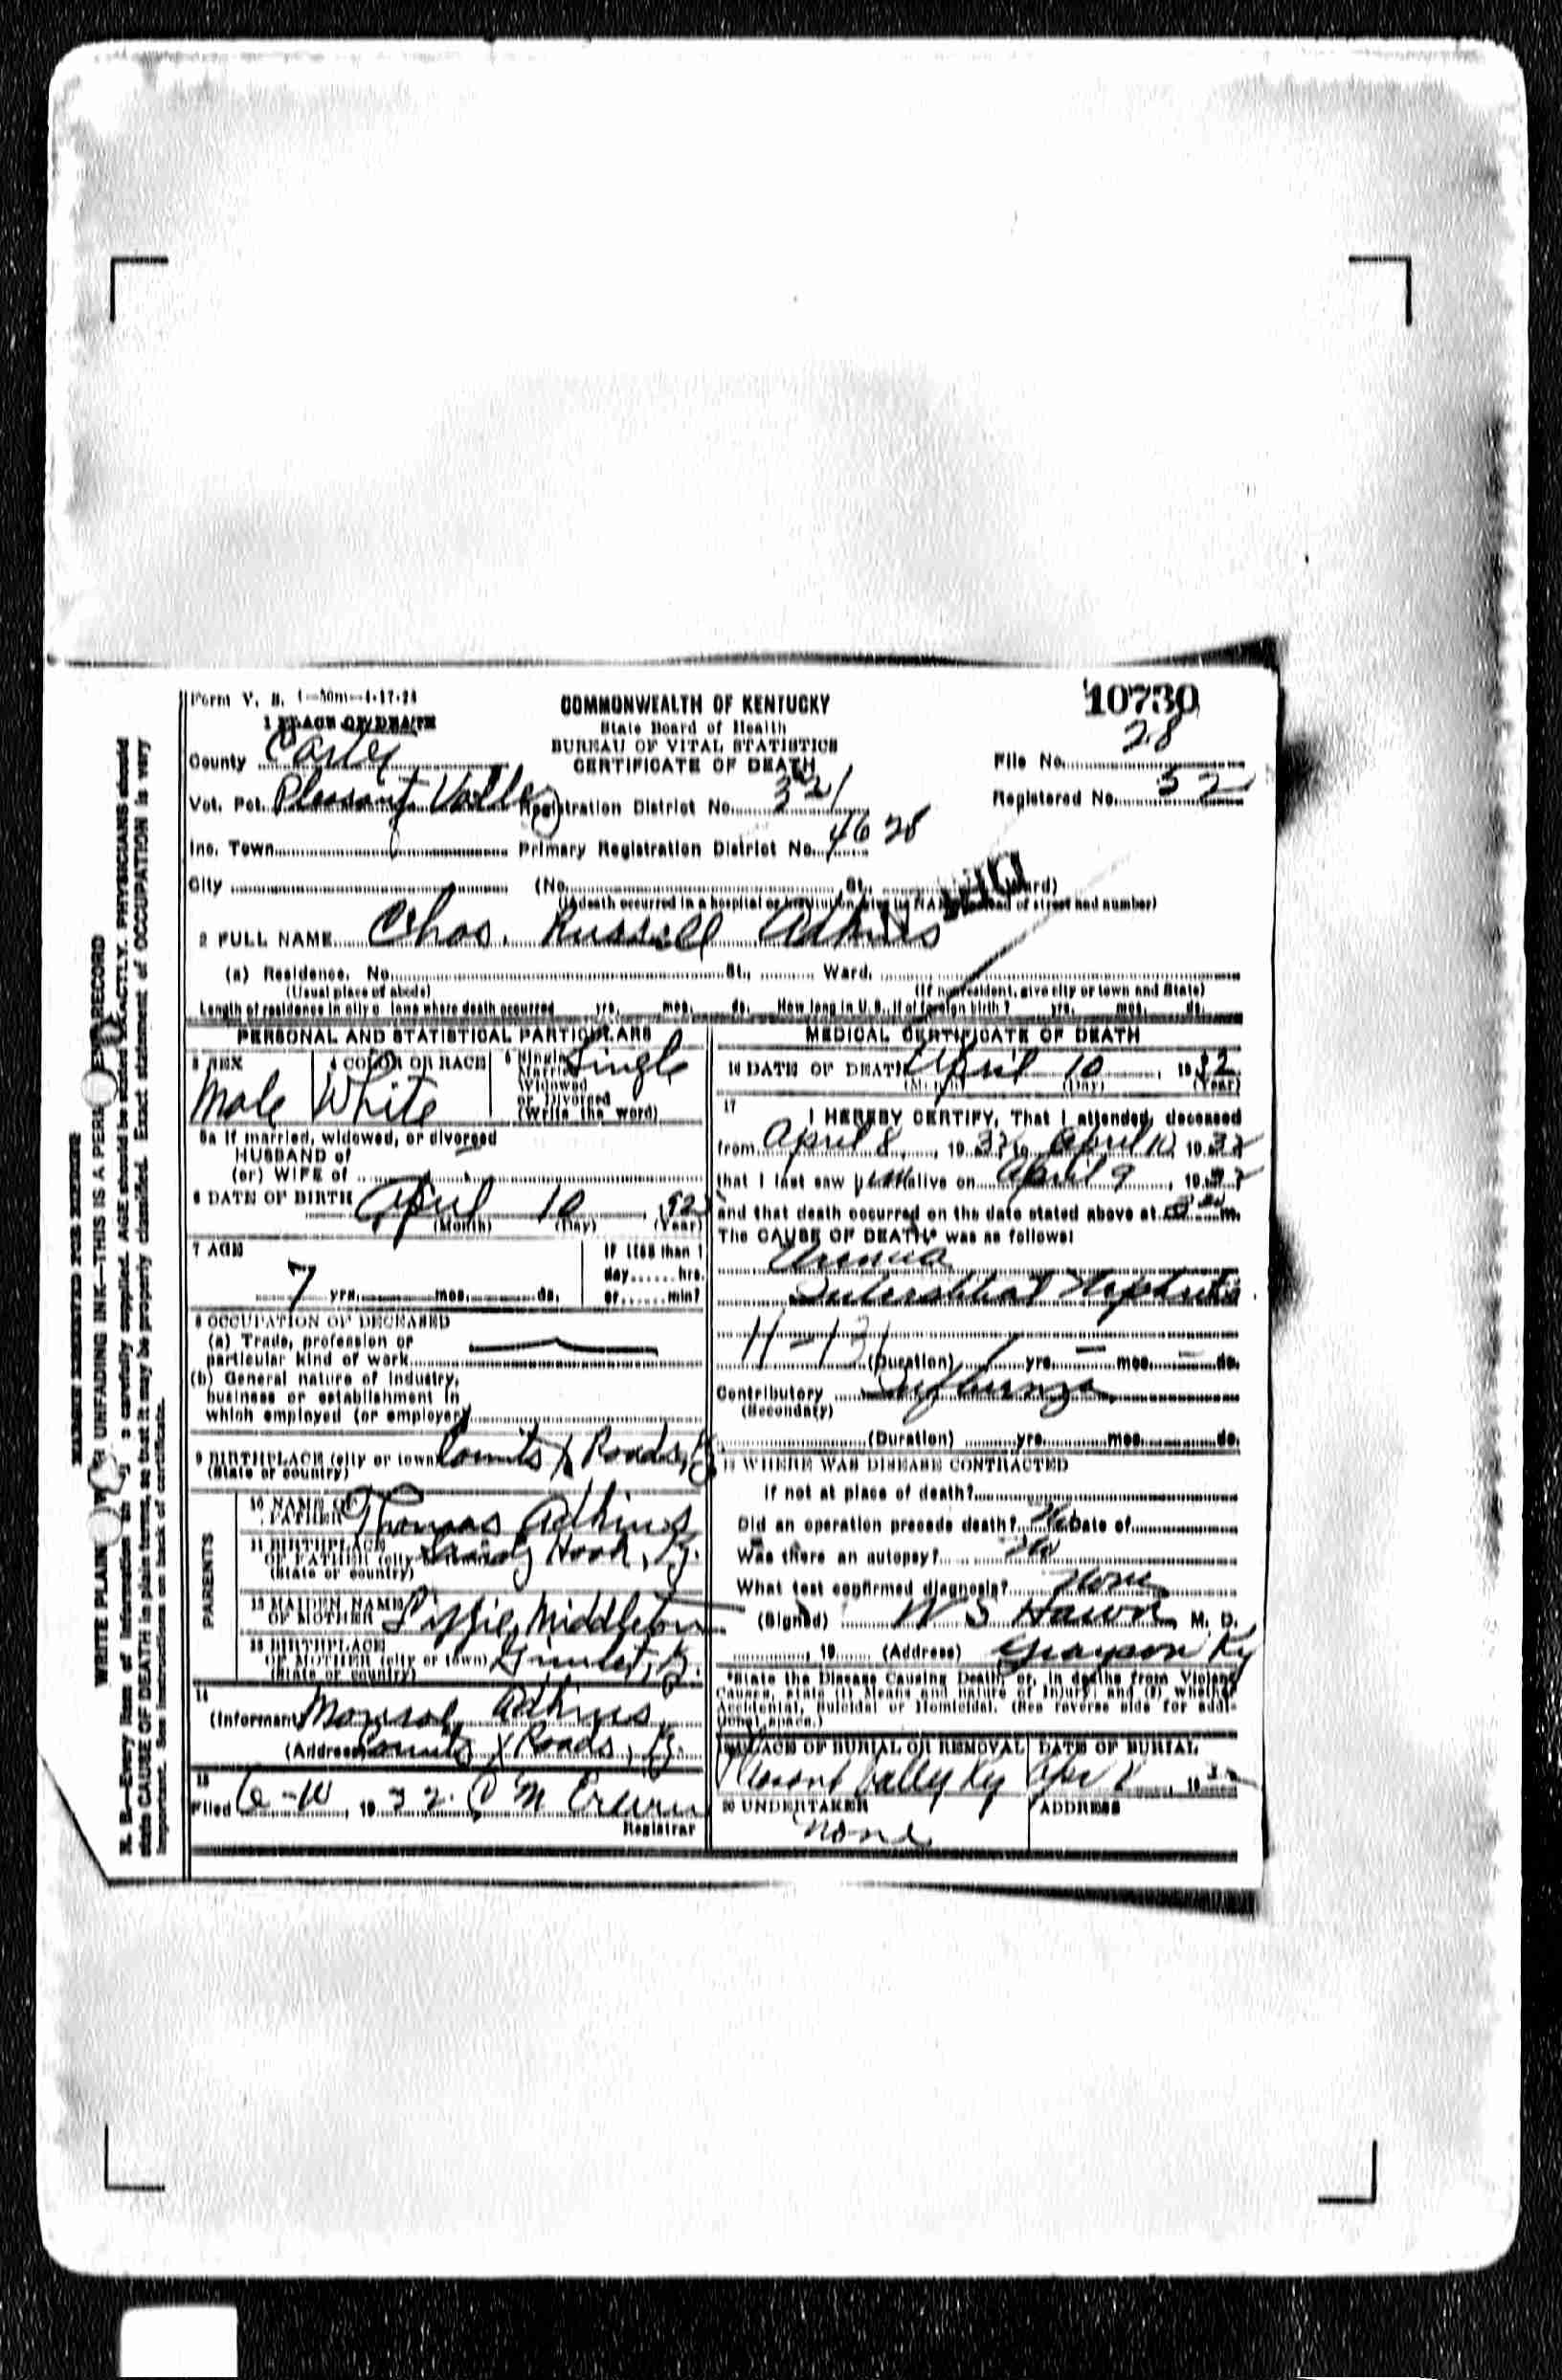 Form V. S. 1-50m-4-17-28
COMMONWEALTH OF KENTUCKY
State Board of Health
BUREAU OF VITAL STATISTICS
CERTIFICATE OF DEATH
10730
28
File No.
Registered No. 52
1 PLACE OF DEATH
County Carter
Vot. Pct. Pleasant Valley Registration District No. 321
Inc. Town Primary Registration District No. 4628
City (No. St., Ward)
(If death occurred in a hospital or institution give its NAME instead of street and number)
2 FULL NAME Chas. Russell Adkins
(a) Residence. No. St., Ward.
(Usual place of abode) (If nonresident, give city or town and State)
Length of residence in city or town where death occurred yrs. mos. ds. How long in U. S., if of foreign birth? yrs. mos. ds.
PERSONAL AND STATISTICAL PARTICULARS
3 SEX Male
4 COLOR OR RACE White
5 Single Married Widowed or Divorced (Write the word) Single
5a If married, widowed, or divorced
HUSBAND of
(or) WIFE of
6 DATE OF BIRTH April 10, 192
(Month) (Day) (Year)
7 AGE 7 yrs. mos. ds.
If LESS than 1 day hrs. or min?
8 OCCUPATION OF DECEASED
(a) Trade, profession or
particular kind of work
(b) General nature of industry,
business or establishment in
which employed (or employer)
9 BIRTHPLACE (city or town) Counts X Roads, Ky
(State or country)
PARENTS
10 NAME OF FATHER Thomas Adkins
11 BIRTHPLACE OF FATHER (city Sandy Hook, Ky.
(State or country)
12 MAIDEN NAME OF MOTHER Lizzie Middleton
13 BIRTHPLACE OF MOTHER (city or town) Gimlet, Ky.
(State or country)
14 (Informant Monroe Adkins
(Address Counts X Roads, Ky.
15 Filed 6-10, 1932.
Registrar
MEDICAL CERTIFICATE OF DEATH
16 DATE OF DEATH April 10, 1932
(Month) (Day) (Year)
17 I HEREBY CERTIFY, That I attended deceased
from April 8, 1932 to April 10, 1932
that I last saw him alive on April 9, 1932
and that death occurred on the date stated above at m.
The CAUSE OF DEATH* was as follows:
Uremia
Interstitial Nephritis
11-131
(Duration) 1 yrs. - mos. - ds.
Contributory Influenza
(Secondary)
(Duration) yrs. mos. ds.
18 WHERE WAS DISEASE CONTRACTED
If not at place of death?
Did an operation precede death? No Date of
Was there an autopsy? No
What test confirmed diagnosis? None
(Signed) W S Hawn, M. D.
, 19 (Address) Grayson Ky
*State the Disease Causing Death, or, in deaths from Violent
Causes, state (1) Means and nature of Injury; and (2) whether
Accidental, Suicidal or Homicidal. (See reverse side for addi-
tional space.)
19 PLACE OF BURIAL OR REMOVAL Pleasant Valley Ky
DATE OF BURIAL
20 UNDERTAKER None
ADDRESS
MARGIN RESERVED FOR BINDING
WRITE PLAINLY WITH UNFADING INK—THIS IS A PERMANENT RECORD
N. B.—Every item of information should be carefully supplied. AGE should be stated EXACTLY. PHYSICIANS should
state CAUSE OF DEATH in plain terms, so that it may be properly classified. Exact statement of OCCUPATION is very
important. See instructions on back of certificate.